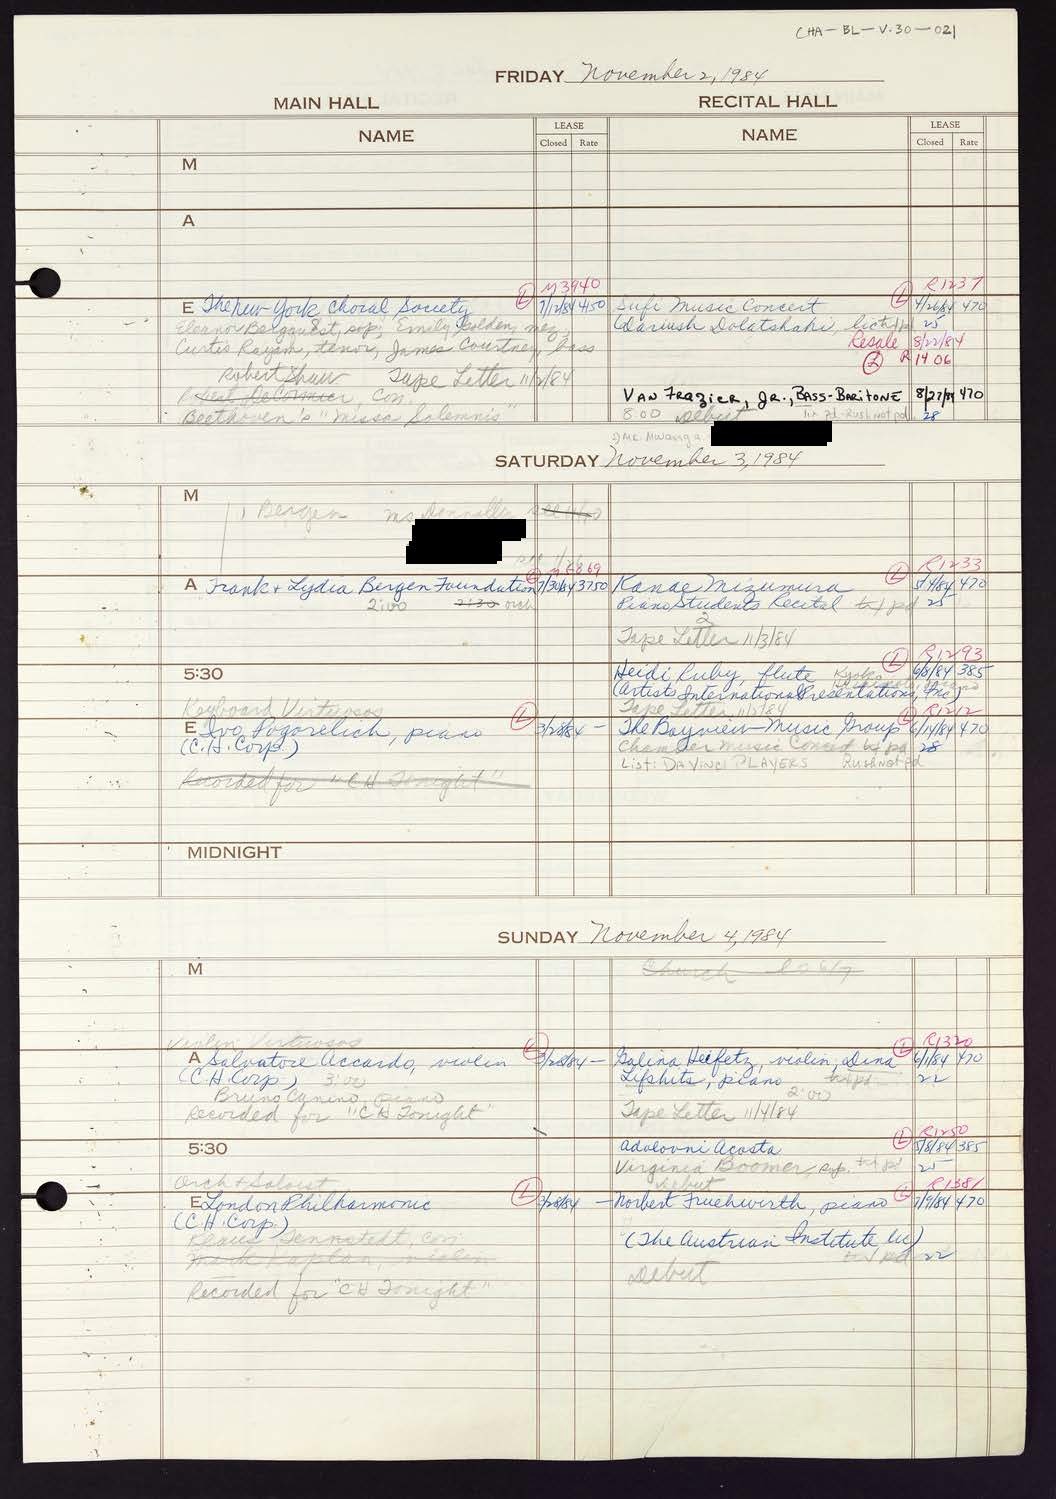 CHA-BL-V.30-021
FRIDAY November 2, 1984
MAIN HALL
RECITAL HALL
NAME
LEASE
Closed Rate
NAME
LEASE
Closed Rate
M
A
M3940
E The New York Choral Society L 7/12/84 4150
Eleanor Bergquist, sop; Emily Golden, mez,
Curtis Rayam, tenor, James Courtney, bass
Robert Shaw Tape Letter 11/2/84
DeCormier, Con.
Beethoven's "Missa Solemnis"
R1237
Sufi Music Concert L 4/26/84 470
Dariush Dolatshahi, 25
Resale 8/22/84
L R1406
VAN FRAZIER, JR., BASS-BARITONE 8/27/84 470
8:00 Debut Rush not pd 28
1) Mr. Mwanga
SATURDAY November 3, 1984
M
1) Bergen Ms. Donnalley
A Frank & Lydia Bergen Foundation 7/30/84 3750
2:00 2:30 orch
R1233
Kanae Mizumura L 5/4/84 470
Piano Students Recital txt pd 25
2
Tape Letter 11/3/84
5:30
R1293
Heidi Ruby, flute L 6/8/84 385
(Artists International Presentations, Inc.)
Tape Letter 11/3/84
Keyboard Virtuosos
E Ivo Pogorelich, piano L 3/28/84 -
(C.H. Corp.)
Recorded for "CH Tonight"
R1212
The Bayview Music Group L 6/14/84 470
Chamber Music Concert txt pd 28
List: DA VINCI PLAYERS Rush not pd
MIDNIGHT
SUNDAY November 4, 1984
M
Church
Violin Virtuosos
A Salvatore Accardo, violin L 3/28/84 -
(C.H. Corp.) 3:00
Bruno Canino, piano
Recorded for "CH Tonight"
R1320
Galina Heifetz, violin, Dina L 6/1/84 470
Lifshits, piano txt pd 22
2:00
Tape Letter 11/4/84
5:30
R1250
Adolovni Acosta L 5/8/84 385
Virginia Boomer, sop. txt pd 25
Debut
Orch & Soloist
E London Philharmonic L 3/28/84 -
(C.H. Corp.)
Klaus Tennstedt, con
Mark Kaplan, violin
Recorded for "CH Tonight"
R1381
Norbert Fruehwirth, piano L 7/9/84 470
(The Austrian Institute Inc)
txt pd 22
Debut